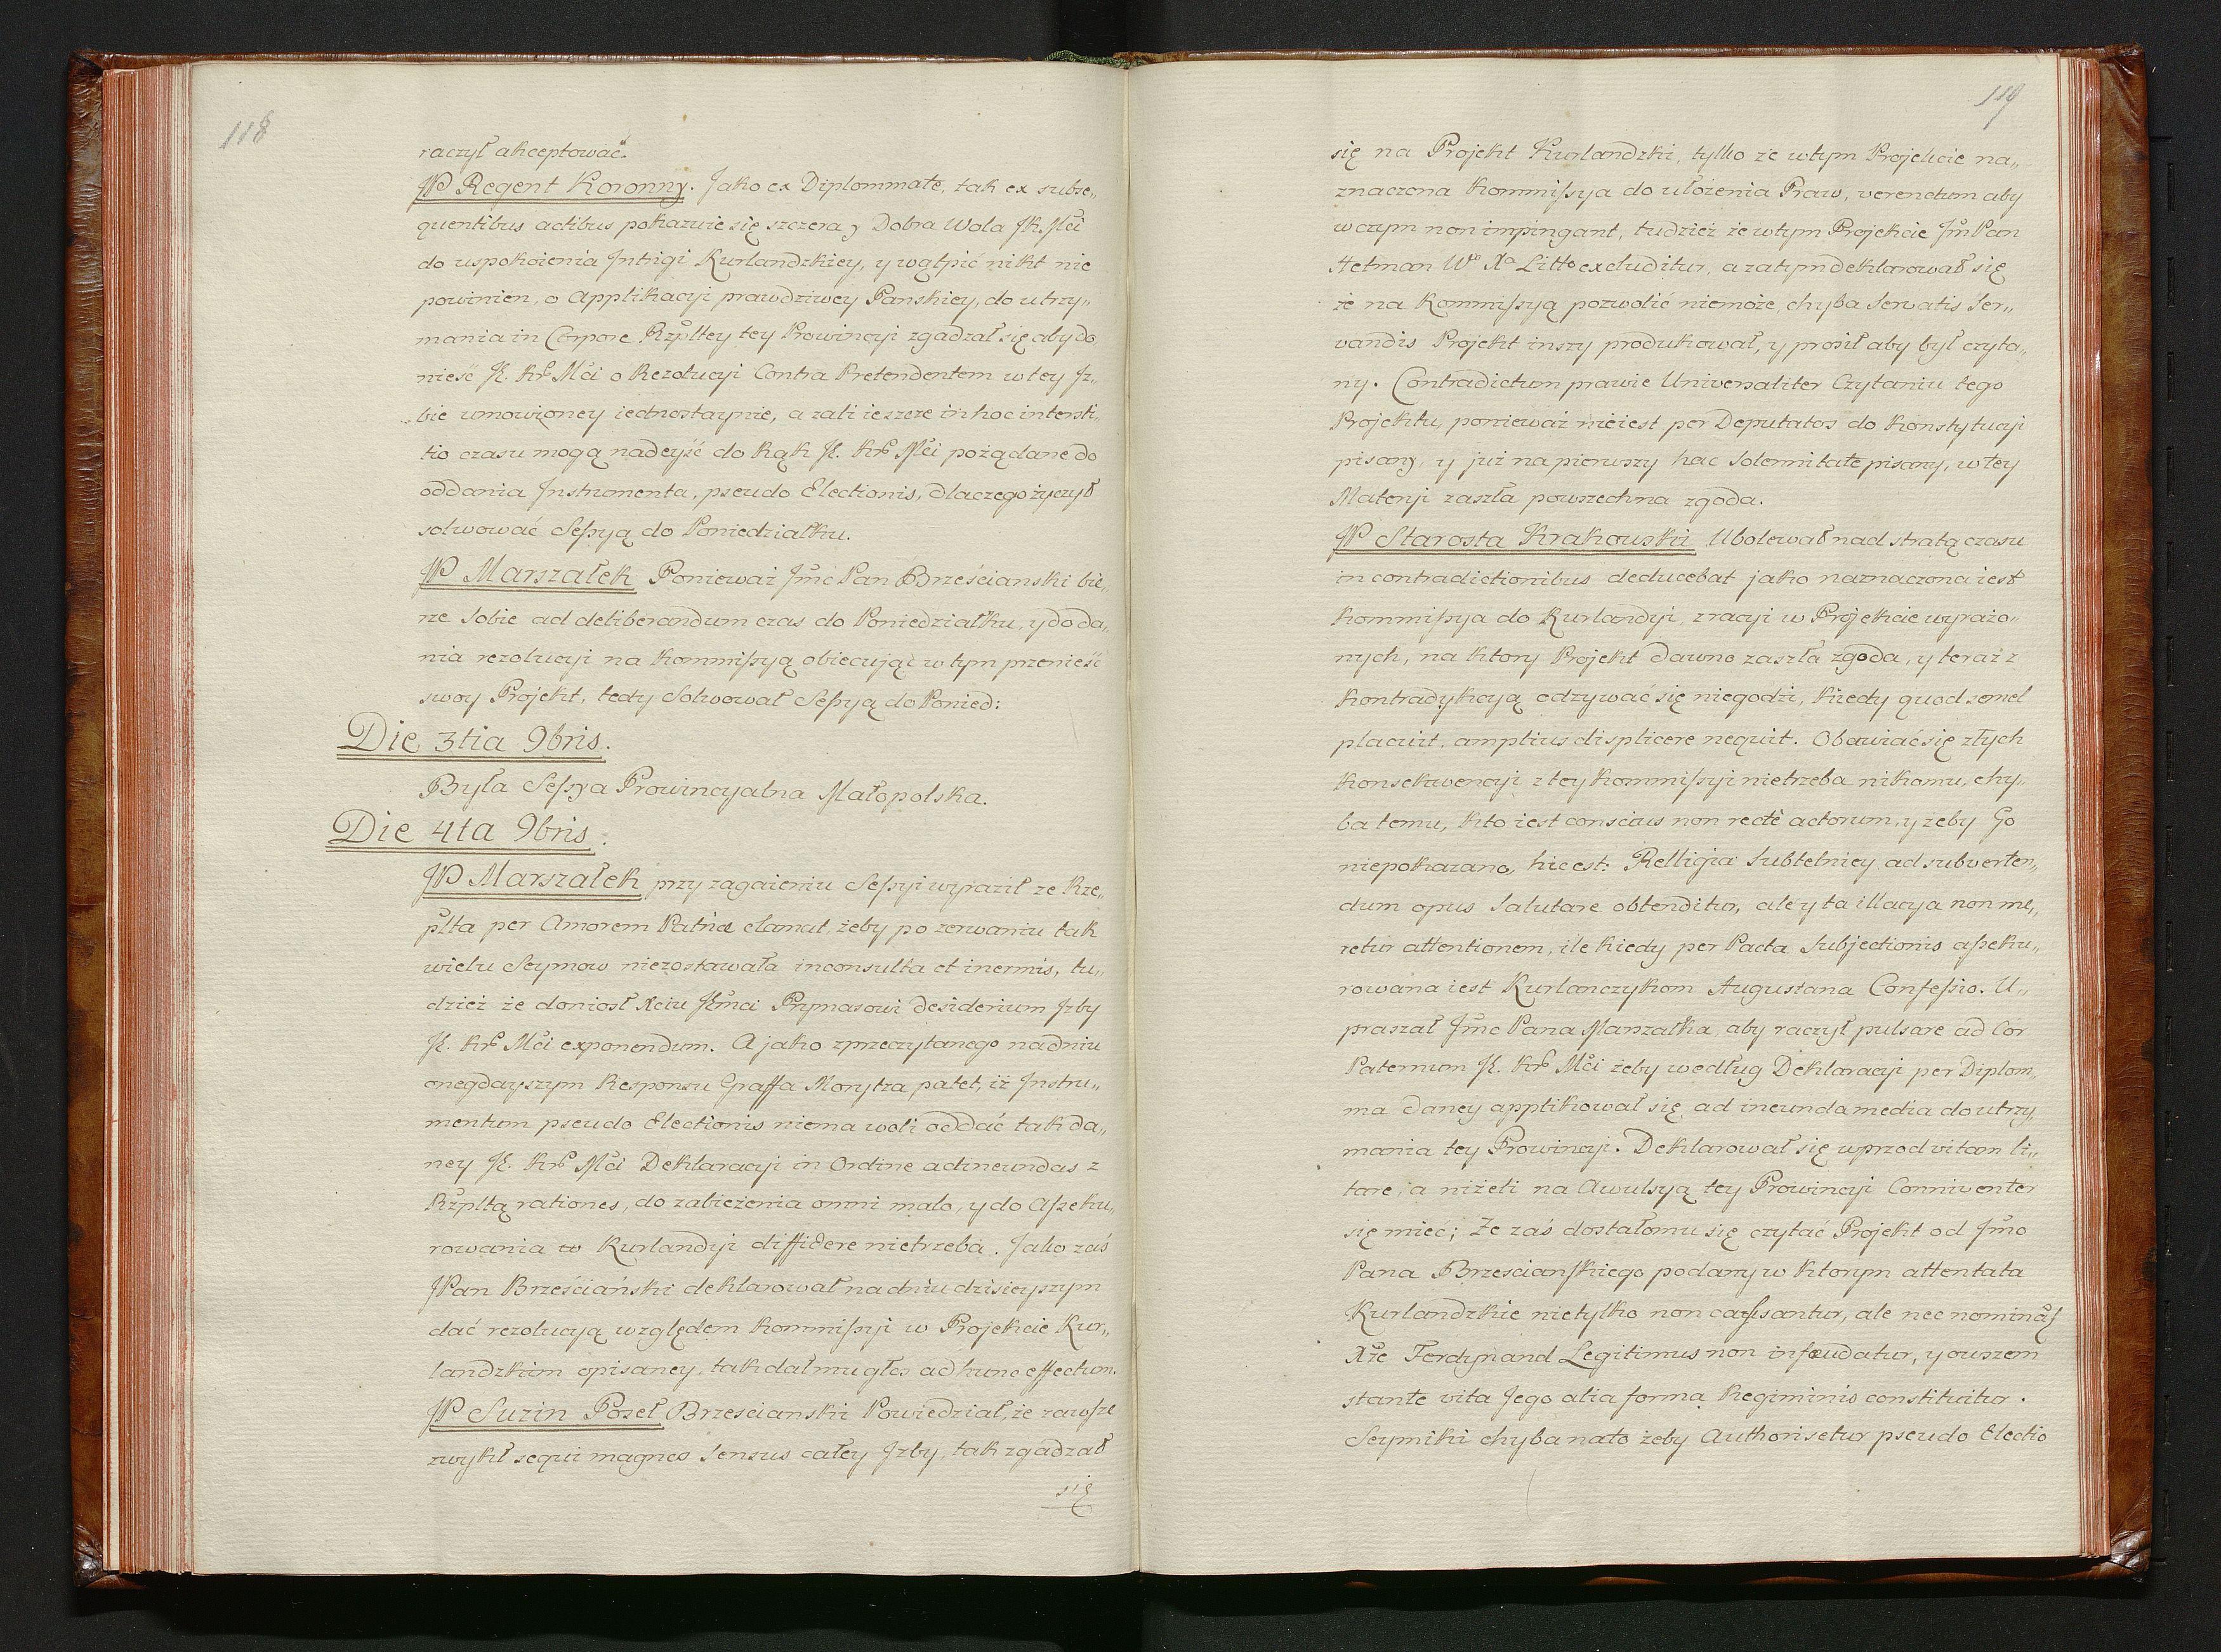 118
raczył akceptować.
JP Regent Koronny. Jako ex Diplommate, tak ex subse„
quentibus actibus pokazuie się szczera y Dobra Wola JK. Mci
do uspokoienia Jntrigi Kurlandzkiey, y wątpić nikt nie
powinien, o Applikacyi prawdziwey Panskiey, do utrzy„
mania in Corpore Rzpltey tey Prowincyi zgadzał się aby do
nieść JK. Kr Mci o Rezolucyi Contra Pretendentem w tey Jz„
bie umowioney iednostaynie, a zali ieszcze in hoc intersti„
tio czasu mogą nadeyść do Rąk JK. Kr Mci pożądane do
oddania Jnstrumenta, pseudo Electionis, dlaczego życzył
solwować Sessyą do Poniedziałku.
JP Marszałek Ponieważ Jmc Pan Brześcianski bie„
rze Sobie ad deliberandum czas do Poniedziałku, y do da„
nia rezolucyi na Kommissyą obiecując w tym przenieść
swoy Projekt, tedy Solwował Sessyą do Ponied:
Die 3tia 9bris.
Była Sessya Prowincyalna Małopolska.
Die 4ta 9bris.
JP Marszałek przy zagaieniu Sessyi wyraził ze Rze„
plta per Amorem Patriæ clamat, żeby po zerwaniu tak
wielu Seymow niezostawała inconsulta et inermis, tu„
dzież że doniosł Xciu JKmci Prymasowi Desiderium Jzby
JK. Kr Mci exponendum. A jako zprzeczytanego nadniu
onegdayszym Responsu Graffa Morytza patet, iż Jnstru„
mentum pseudo Electionis niema woli oddać tak da„
ney JK. Kr Mci Deklaracyi in Ordine adineundas z
Rzpltą rationes, do zabieżenia omni malo, y do Asseku„
rowania w Kurlandyi diffidere nietrzeba. Jako zaś
JPan Brześciański deklarował na dniu dzisieyszym
dać rezolucyą względem Kommissyi w Projekcie Kur„
landzkim opisaney, tak dał mu głos ad hunc effectum.
JP Suzin Poseł Brzescianski Powiedział, że zawsze
zwykł sequi magnos Sensus całey Jzby, tak zgadzał
się
119
się na Projekt Kurlandzki, tylko że wtym Projekcie na„
znaczona Kommissya do ułożenia Praw, verendum aby
w czym non impingant, tudzież że wtym Projekcie Jm Pan
Hetman W° Xa Litt° excluditur, a zatym deklarował się
że na Kommissyą pozwolić niemoże, chyba Servatis Ser„
vandis Projekt inszy produkował, y prosił aby był czyta„
ny. Contradictum prawie Universaliter Czytaniu tego
Projektu, ponieważ nieiest per Deputatos do Konstytucyi
pisany, y już na pierwszy hac Solennitate pisany, w tey
Materyi zaszła powszechna zgoda.
JP Starosta Krakowski Ubolewał nad stratą czasu
in contradictionibus deducebat jako naznaczona iest
Kommissya do Kurlandyi, z racyi w Projekcie wyrażo„
nych, na ktory Projekt dawno zaszła zgoda, y teraz z
Kontradykcyą odzywać się niegodzi, kiedy quod semel
placuit, amplius displicere nequit. Obawiać się złych
Konsekwencyi z tey Kommissyi nietrzeba nikomu, chy„
ba temu, kto iest conscius non rectè actorum, y żeby Go
niepokazano, hic est: Relligia Subtelniey ad subverten„
dum opus Salutare obtenditur, ale y ta illacya non me„
retur attentionem, ile kiedy per Pacta Subjectionis asseku„
rowana iest Kurlanczykom Augustana Confessio. U„
praszał Jmc Pana Marszałka, aby raczył pulsare ad Cor
Paternum JK. Kr Mci żeby według Deklaracyi per Diplom„
ma Daney applikował się ad ineunda media do utrzy„
mania tey Prowincyi. Deklarował się uprzod vitam li„
tare, a niżeli na Awulsyą tey Prowincyi Conniventer
się mieć; Że zaś dostało mu się czytać Projekt od Jmc
Pana Brzescianskiego podany w ktorym attentata
Kurlandzkie nietylko non cassantur, ale nec nominant
Xże Ferdynand Legitimus non infœudatur, y owszem
stante vita Jego alia forma Regiminis constituitur.
Seymiki chyba nato żeby Authorisetur pseudo Electio